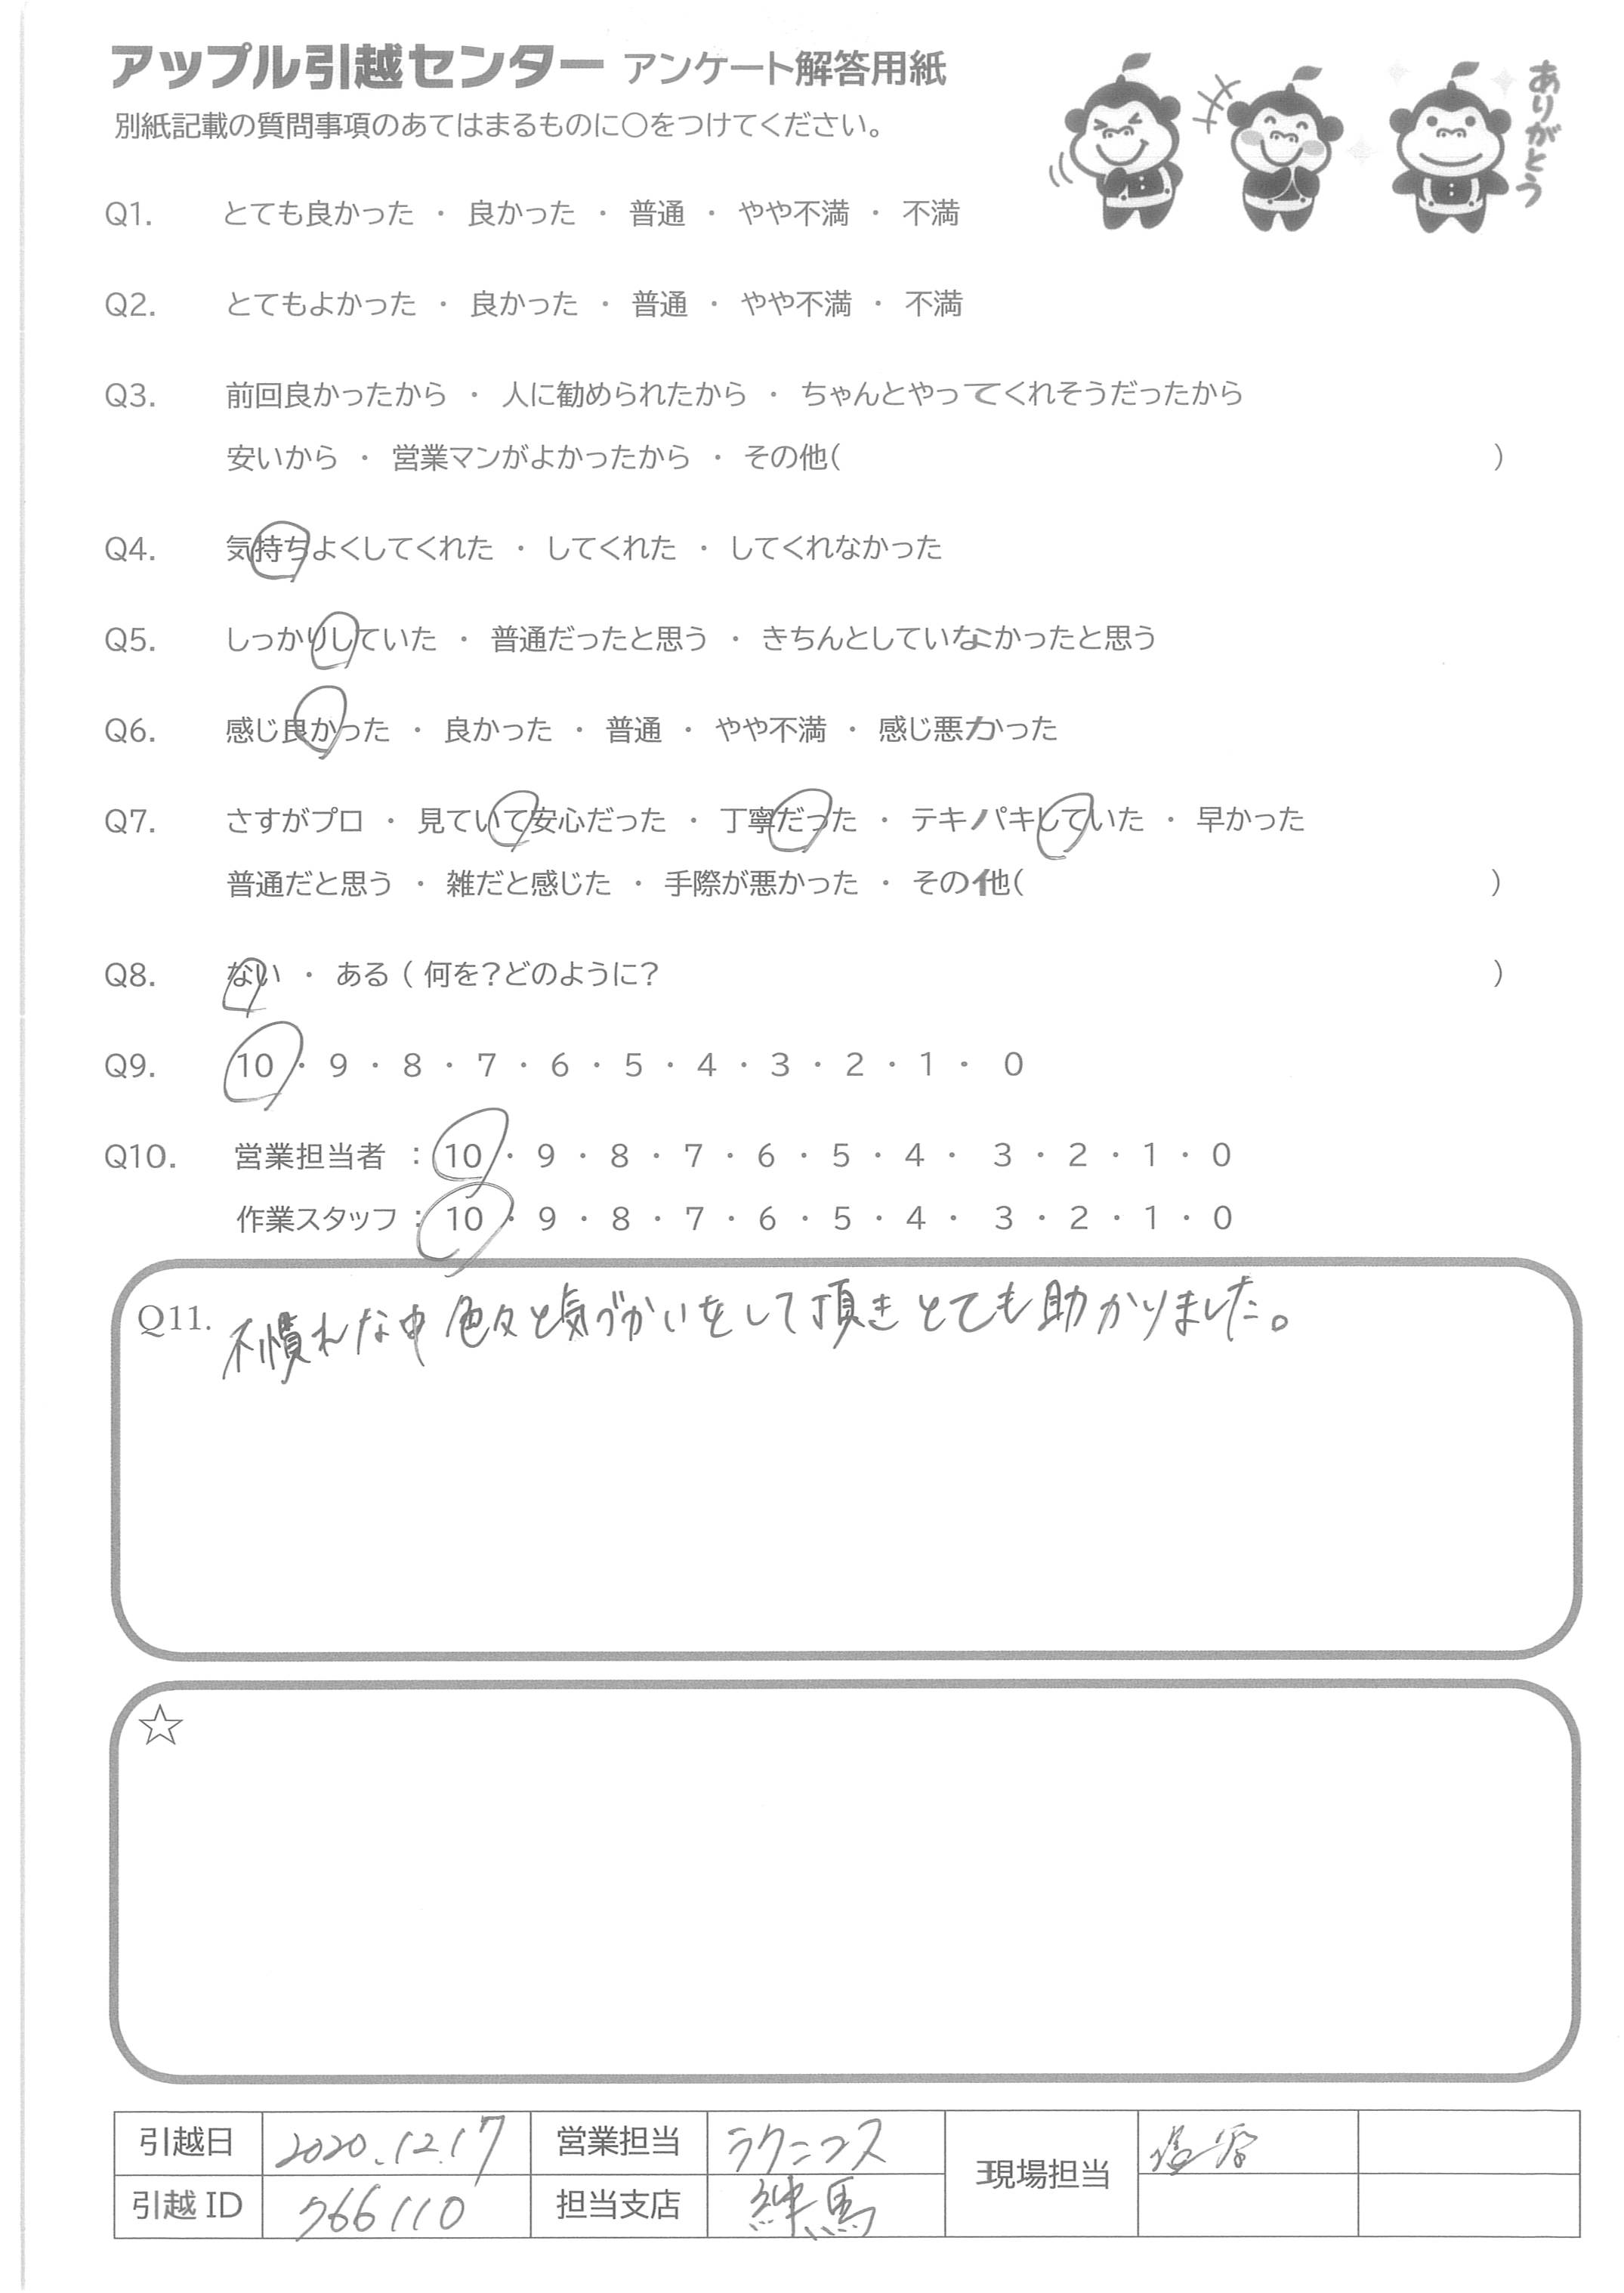 アップル引越センター アンケート解答用紙
ありがとう
別紙記載の質問事項のあてはまるものに○をつけてください。
Q1. とても良かった ・ 良かった ・ 普通 ・ やや不満 ・ 不満
Q2. とてもよかった ・ 良かった ・ 普通 ・ やや不満 ・ 不満
Q3. 前回良かったから ・ 人に勧められたから ・ ちゃんとやってくれそうだったから
安いから ・ 営業マンがよかったから ・ その他( )
Q4. 気持ちよくしてくれた ・ してくれた ・ してくれなかった
Q5. しっかりしていた ・ 普通だったと思う ・ きちんとしていなかったと思う
Q6. 感じ良かった ・ 良かった ・ 普通 ・ やや不満 ・ 感じ悪かった
Q7. さすがプロ ・ 見ていて安心だった ・ 丁寧だった ・ テキパキしていた ・ 早かった
普通だと思う ・ 雑だと感じた ・ 手際が悪かった ・ その他( )
Q8. ない ・ ある ( 何を?どのように? )
Q9. 10 ・ 9 ・ 8 ・ 7 ・ 6 ・ 5 ・ 4 ・ 3 ・ 2 ・ 1 ・ 0
Q10. 営業担当者 : 10 ・ 9 ・ 8 ・ 7 ・ 6 ・ 5 ・ 4 ・ 3 ・ 2 ・ 1 ・ 0
作業スタッフ : 10 ・ 9 ・ 8 ・ 7 ・ 6 ・ 5 ・ 4 ・ 3 ・ 2 ・ 1 ・ 0
Q11. 不慣れな中色々と気づかいをして頂きとても助かりました。
☆
引越日 2020.12.17 営業担当 ラクニコス 現場担当
引越 ID 766110 担当支店 練馬